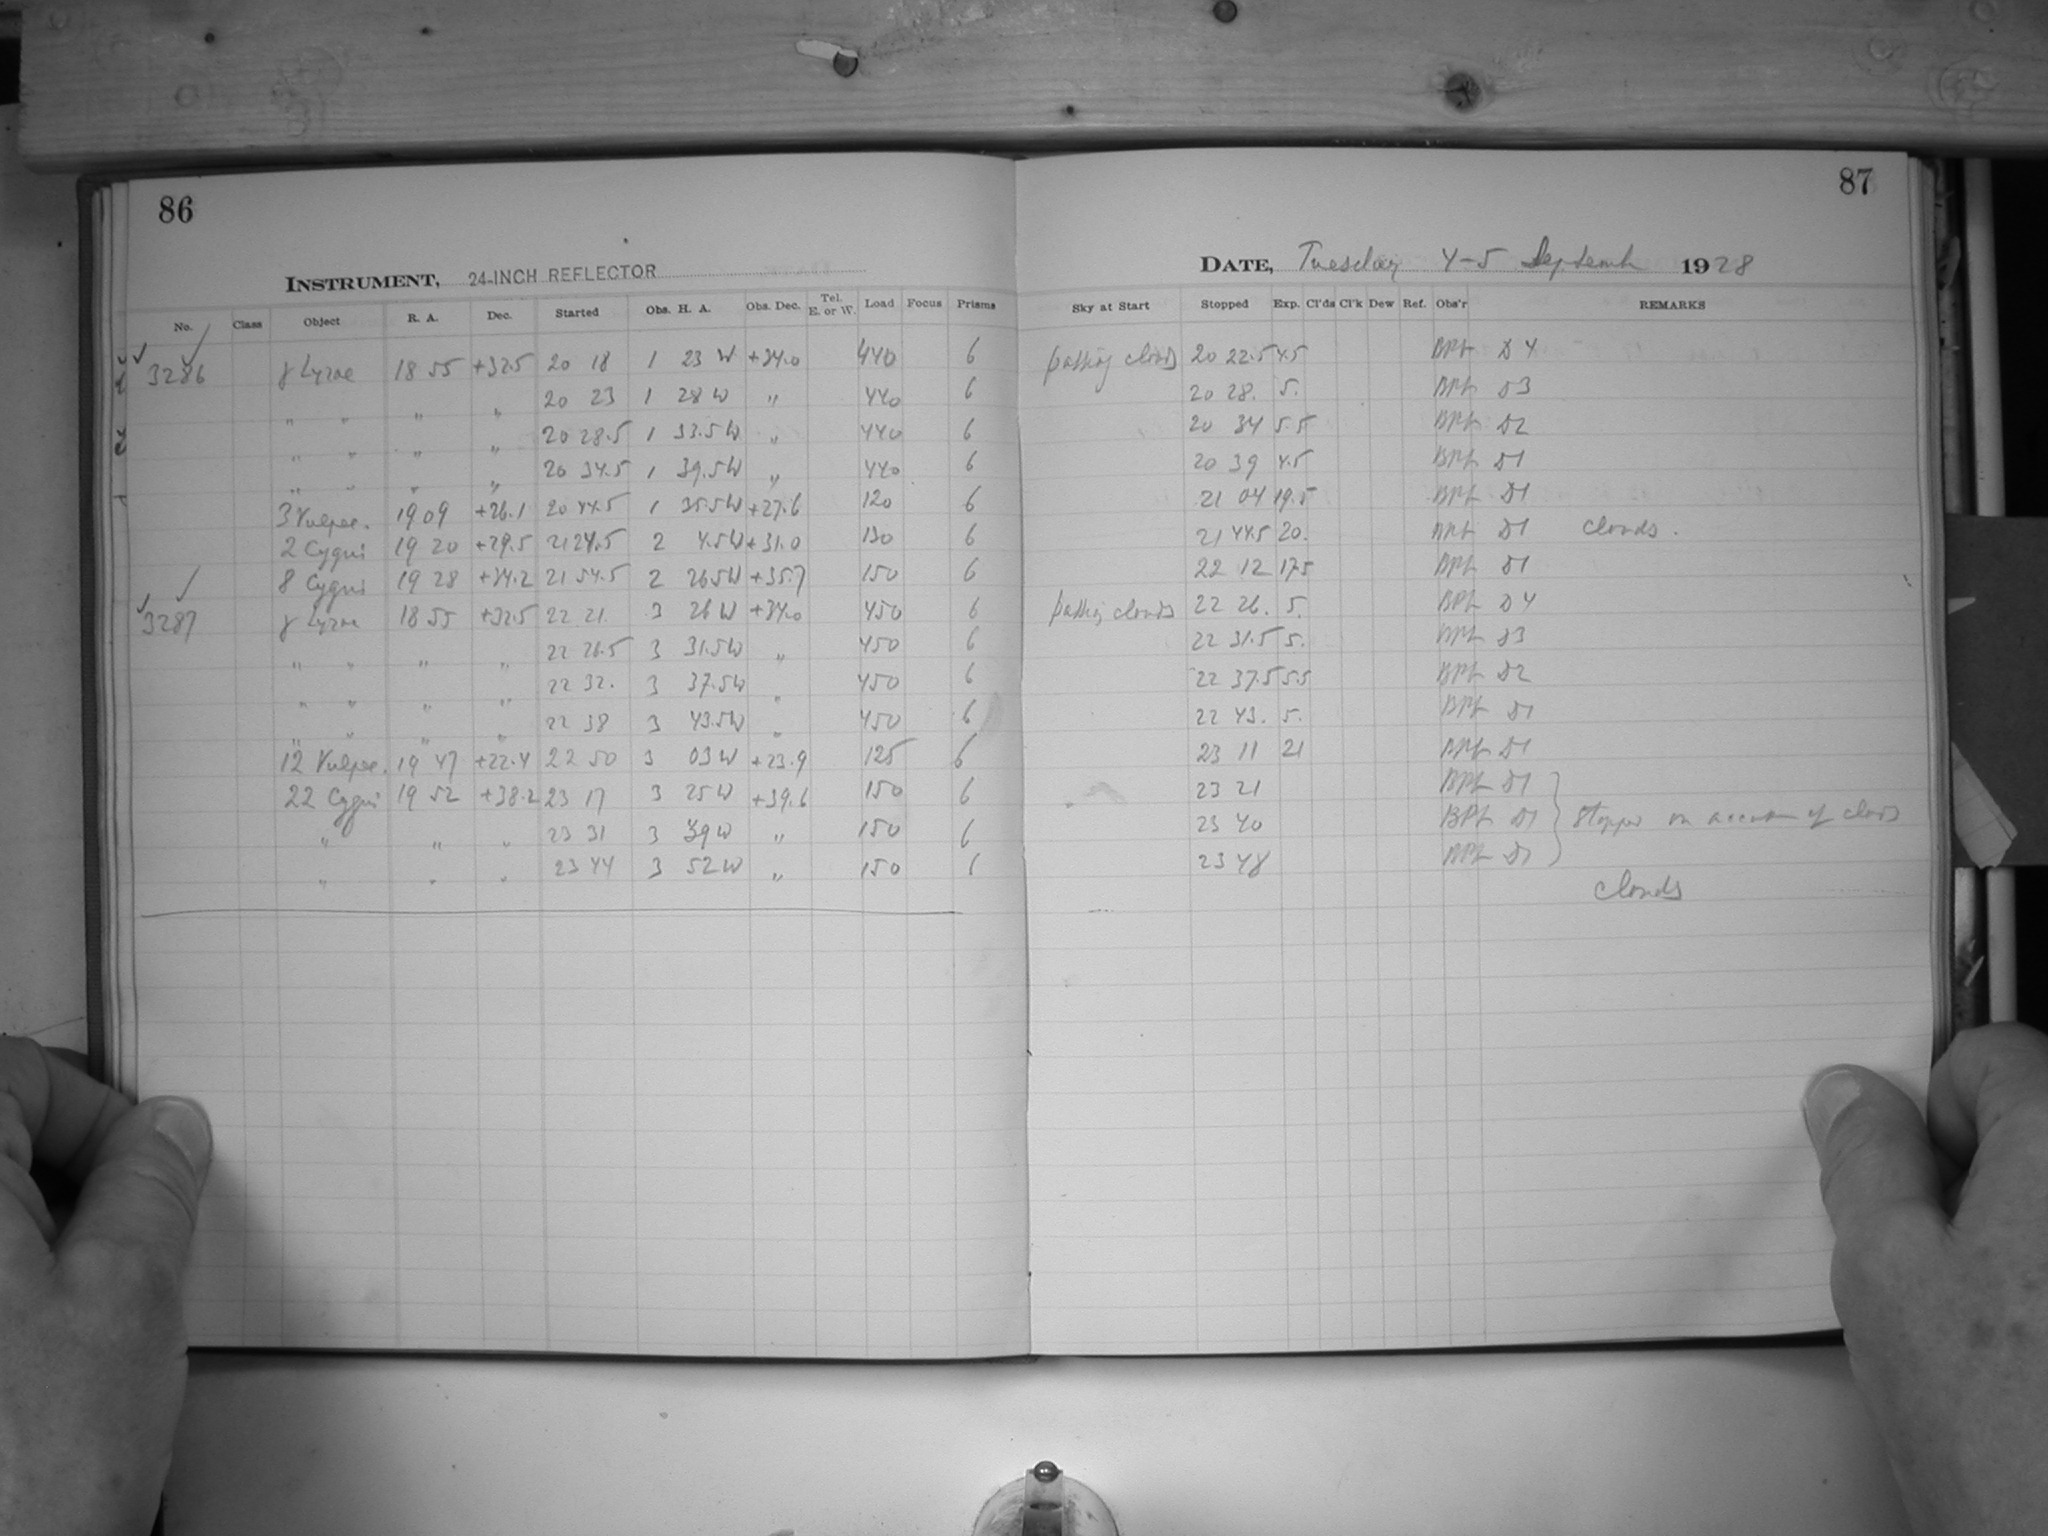 86
INSTRUMENT, 24-INCH REFLECTOR
No. Class Object R. A. Dec. Started Obs. H. A. Obs. Dec. Tel. E. or W. Load Focus Prisms
3286 γ Lyrae 18 55 +32.5 20 18 1 23 W +34.0 440 6
" " " " 20 23 1 28 W " 440 6
" " " " 20 28.5 1 33.5 W " 440 6
" " " " 20 34.5 1 39.5 W " 440 6
3 Vulpec. 19 09 +26.1 20 44.5 1 35.5 W +27.6 120 6
2 Cygni 19 20 +29.5 21 24.5 2 4.5 W +31.0 130 6
8 Cygni 19 28 +34.2 21 54.5 2 26.5 W +35.7 150 6
3287 γ Lyrae 18 55 +32.5 22 21. 3 26 W +34.0 450 6
" " " " 22 26.5 3 31.5 W " 450 6
" " " " 22 32. 3 37.5 W " 450 6
" " " " 22 38 3 43.5 W " 450 6
12 Vulpec. 19 47 +22.4 22 50 3 03 W +23.9 125 6
22 Cygni 19 52 +38.2 23 17 3 25 W +39.6 150 6
" " " 23 31 3 39 W " 150 6
" " " 23 44 3 52 W " 150 6
87
DATE, Tuesday 4-5 Septemb 1928
Sky at Start Stopped Exp. Cl'ds Cl'k Dew Ref. Obs'r REMARKS
passing clouds 20 22.5 4.5 D4
20 28. 5. D3
20 34 5.5 D2
20 39 4.5 D1
21 04 19.5 D1
21 44.5 20. D1 clouds.
22 12 17.5 D1
passing clouds 22 26. 5. D4
22 31.5 5. D3
22 37.5 5.5 D2
22 43. 5. D1
23 11 21 D1
23 21 D1
23 40 D1 Stopped on account of clouds
23 48 D1
clouds